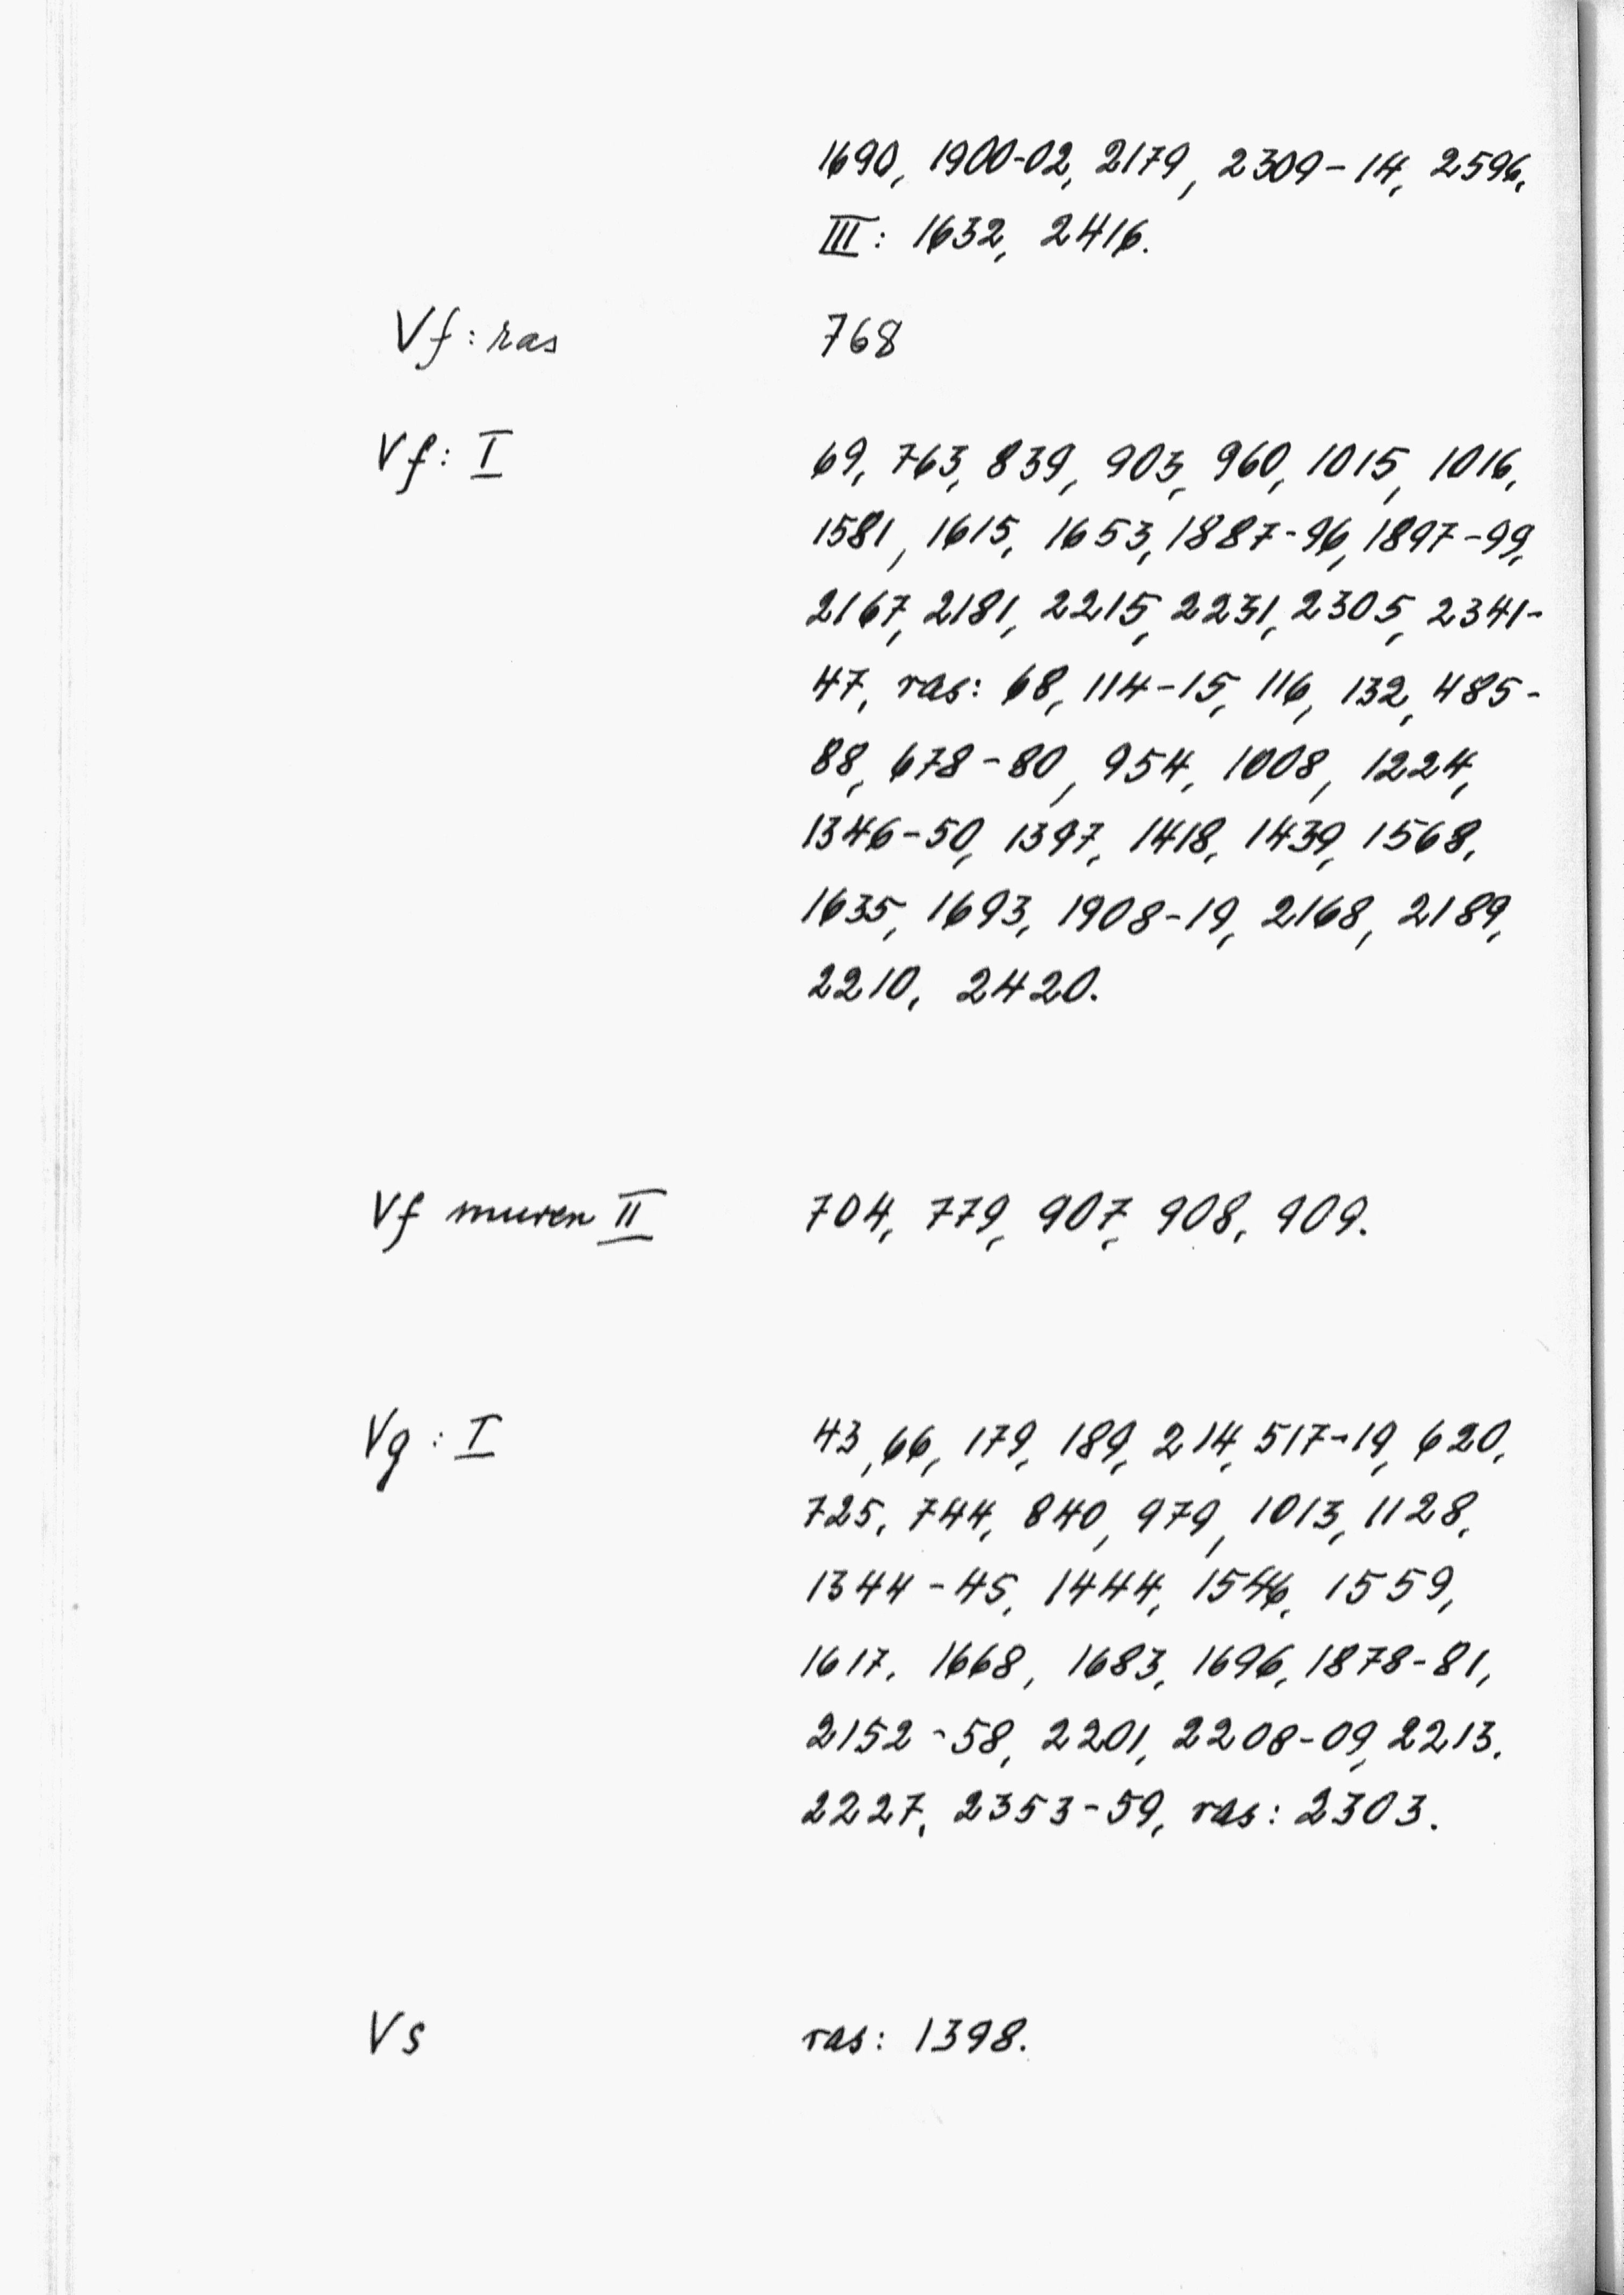 1690, 1900-02, 2179, 2309-14, 2596,
III: 1632, 2416.
Vf: ras 768
Vf: I 69, 763, 839, 903, 960, 1015, 1016,
1581, 1615, 1653, 1887-96, 1897-99,
2167, 2181, 2215, 2231, 2305, 2341-
47, ras: 68, 114-15, 116, 132, 485-
88, 678-80, 954, 1008, 1224,
1346-50, 1397, 1418, 1439, 1568,
1635, 1693, 1908-19, 2168, 2189,
2210, 2420.
Vf muren II 704, 779, 907, 908, 909.
Vg: I 43, 66, 179, 189, 214, 517-19, 620,
725, 744, 840, 979, 1013, 1128,
1344-45, 1444, 1546, 1559,
1617, 1668, 1683, 1696, 1878-81,
2152-58, 2201, 2208-09, 2213,
2227, 2353-59, ras: 2303.
Vs ras: 1398.